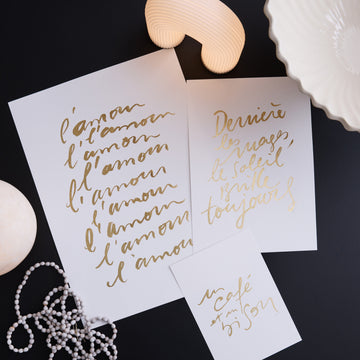 l'amour
l'amour
l'amour
l'amour
l'amour
l'amour
l'amour
l'amour
l'amour
Derrière
les nuages,
le soleil
brille
toujours
un
café
et un
bisou